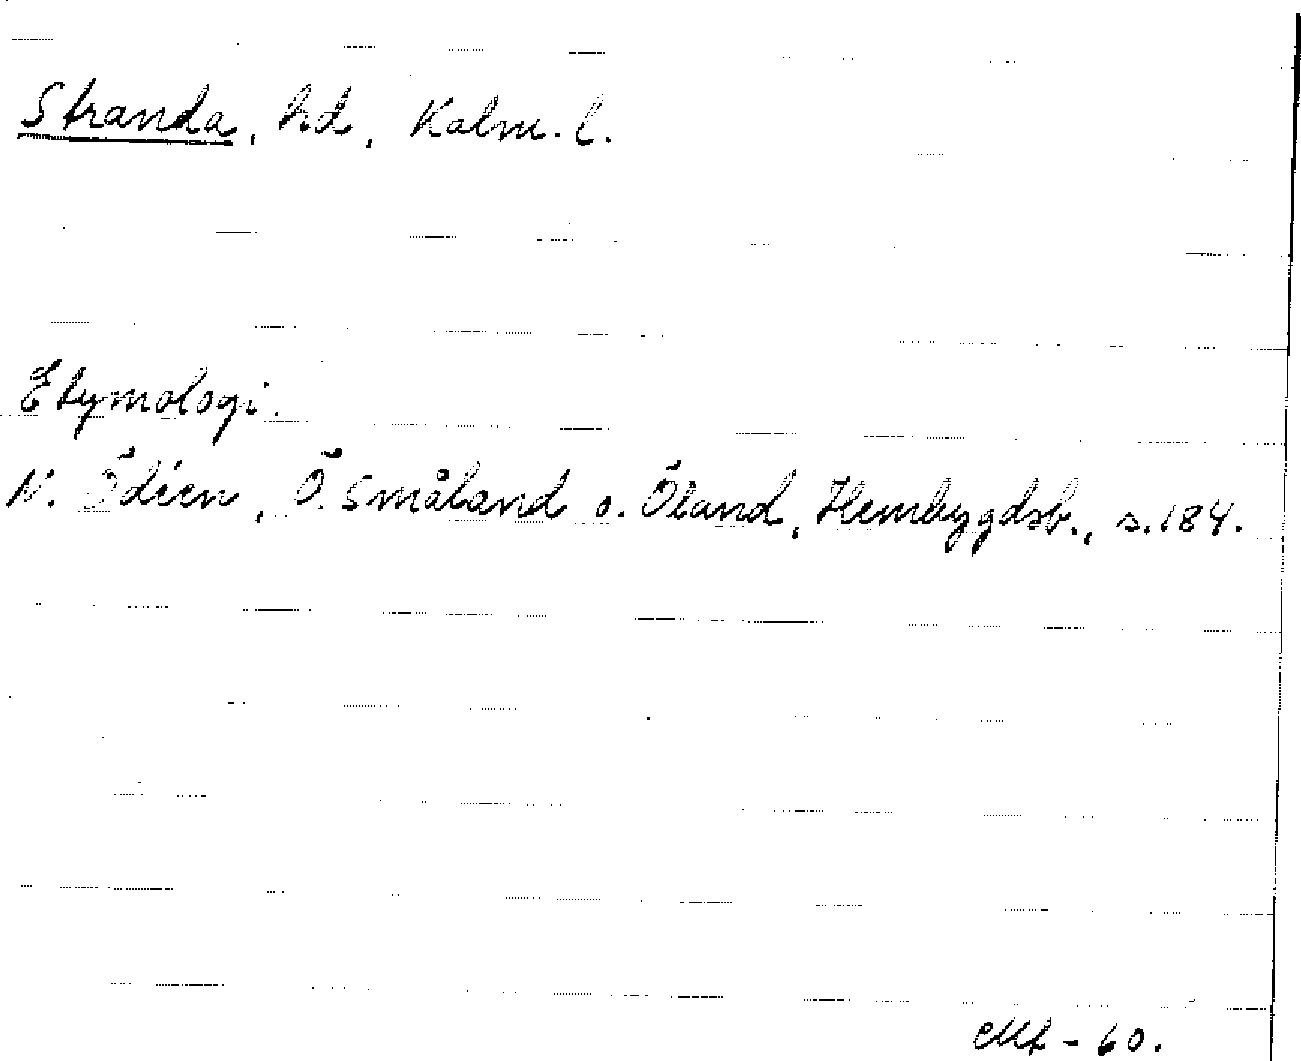 Stranda, hd, Kalm. l.
Etymologi.
N. Ödéen, Ö. Småland o. Öland, Hembygdsb., s. 184.
- 60.